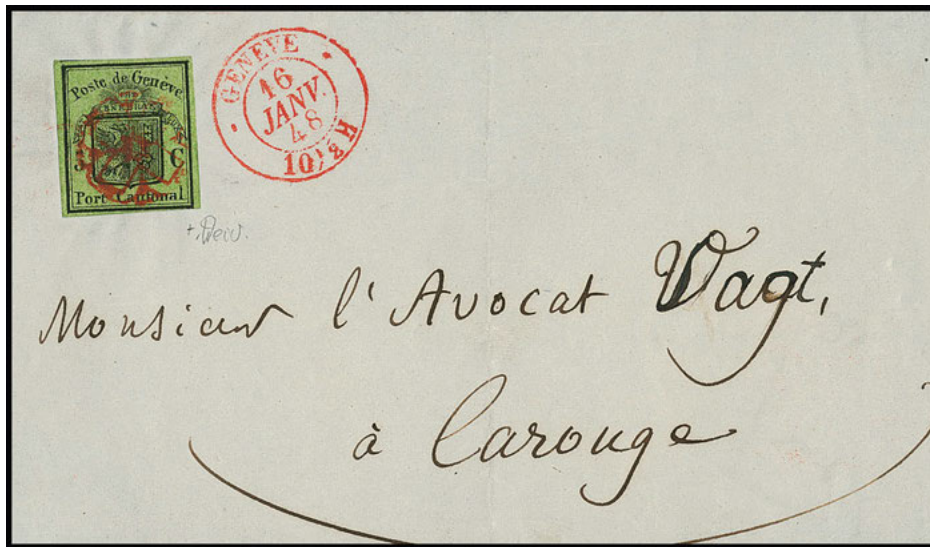 Poste de Genève
5 C
Port Cantonal
GENÈVE
16
JANV.
48
10½ H
Monsieur l'Avocat Vogt,
à Carouge